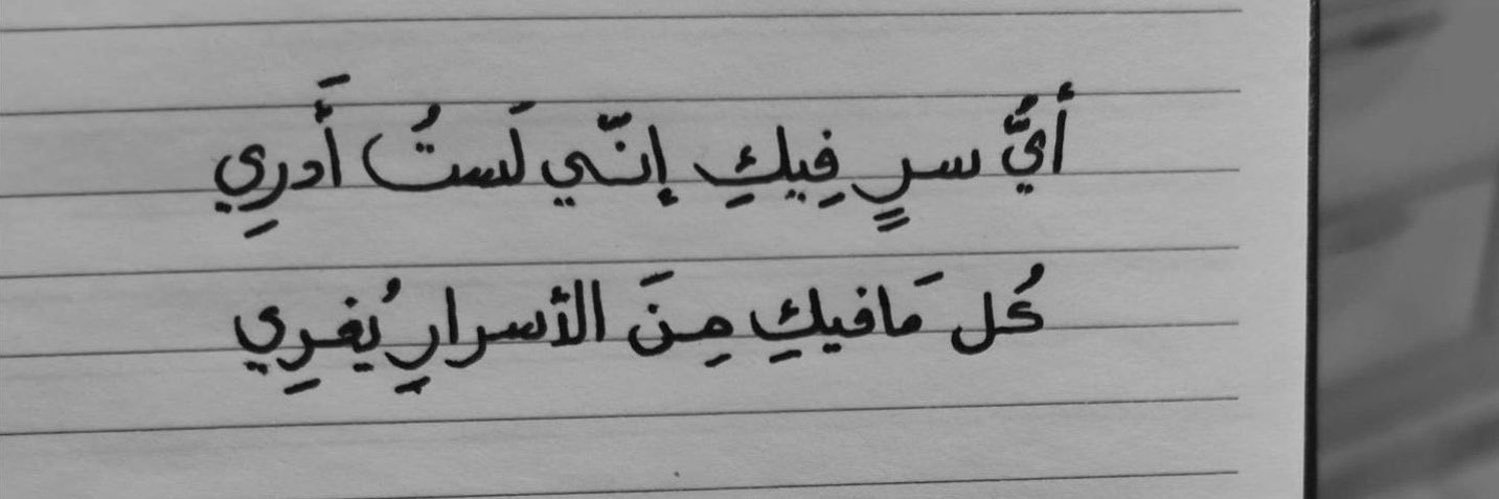 أيُّ سرٍ فِيكِ إنّي لَستُ أَدرِي
كُل مَافيكِ مِنَ الأسرارِ يُغرِي